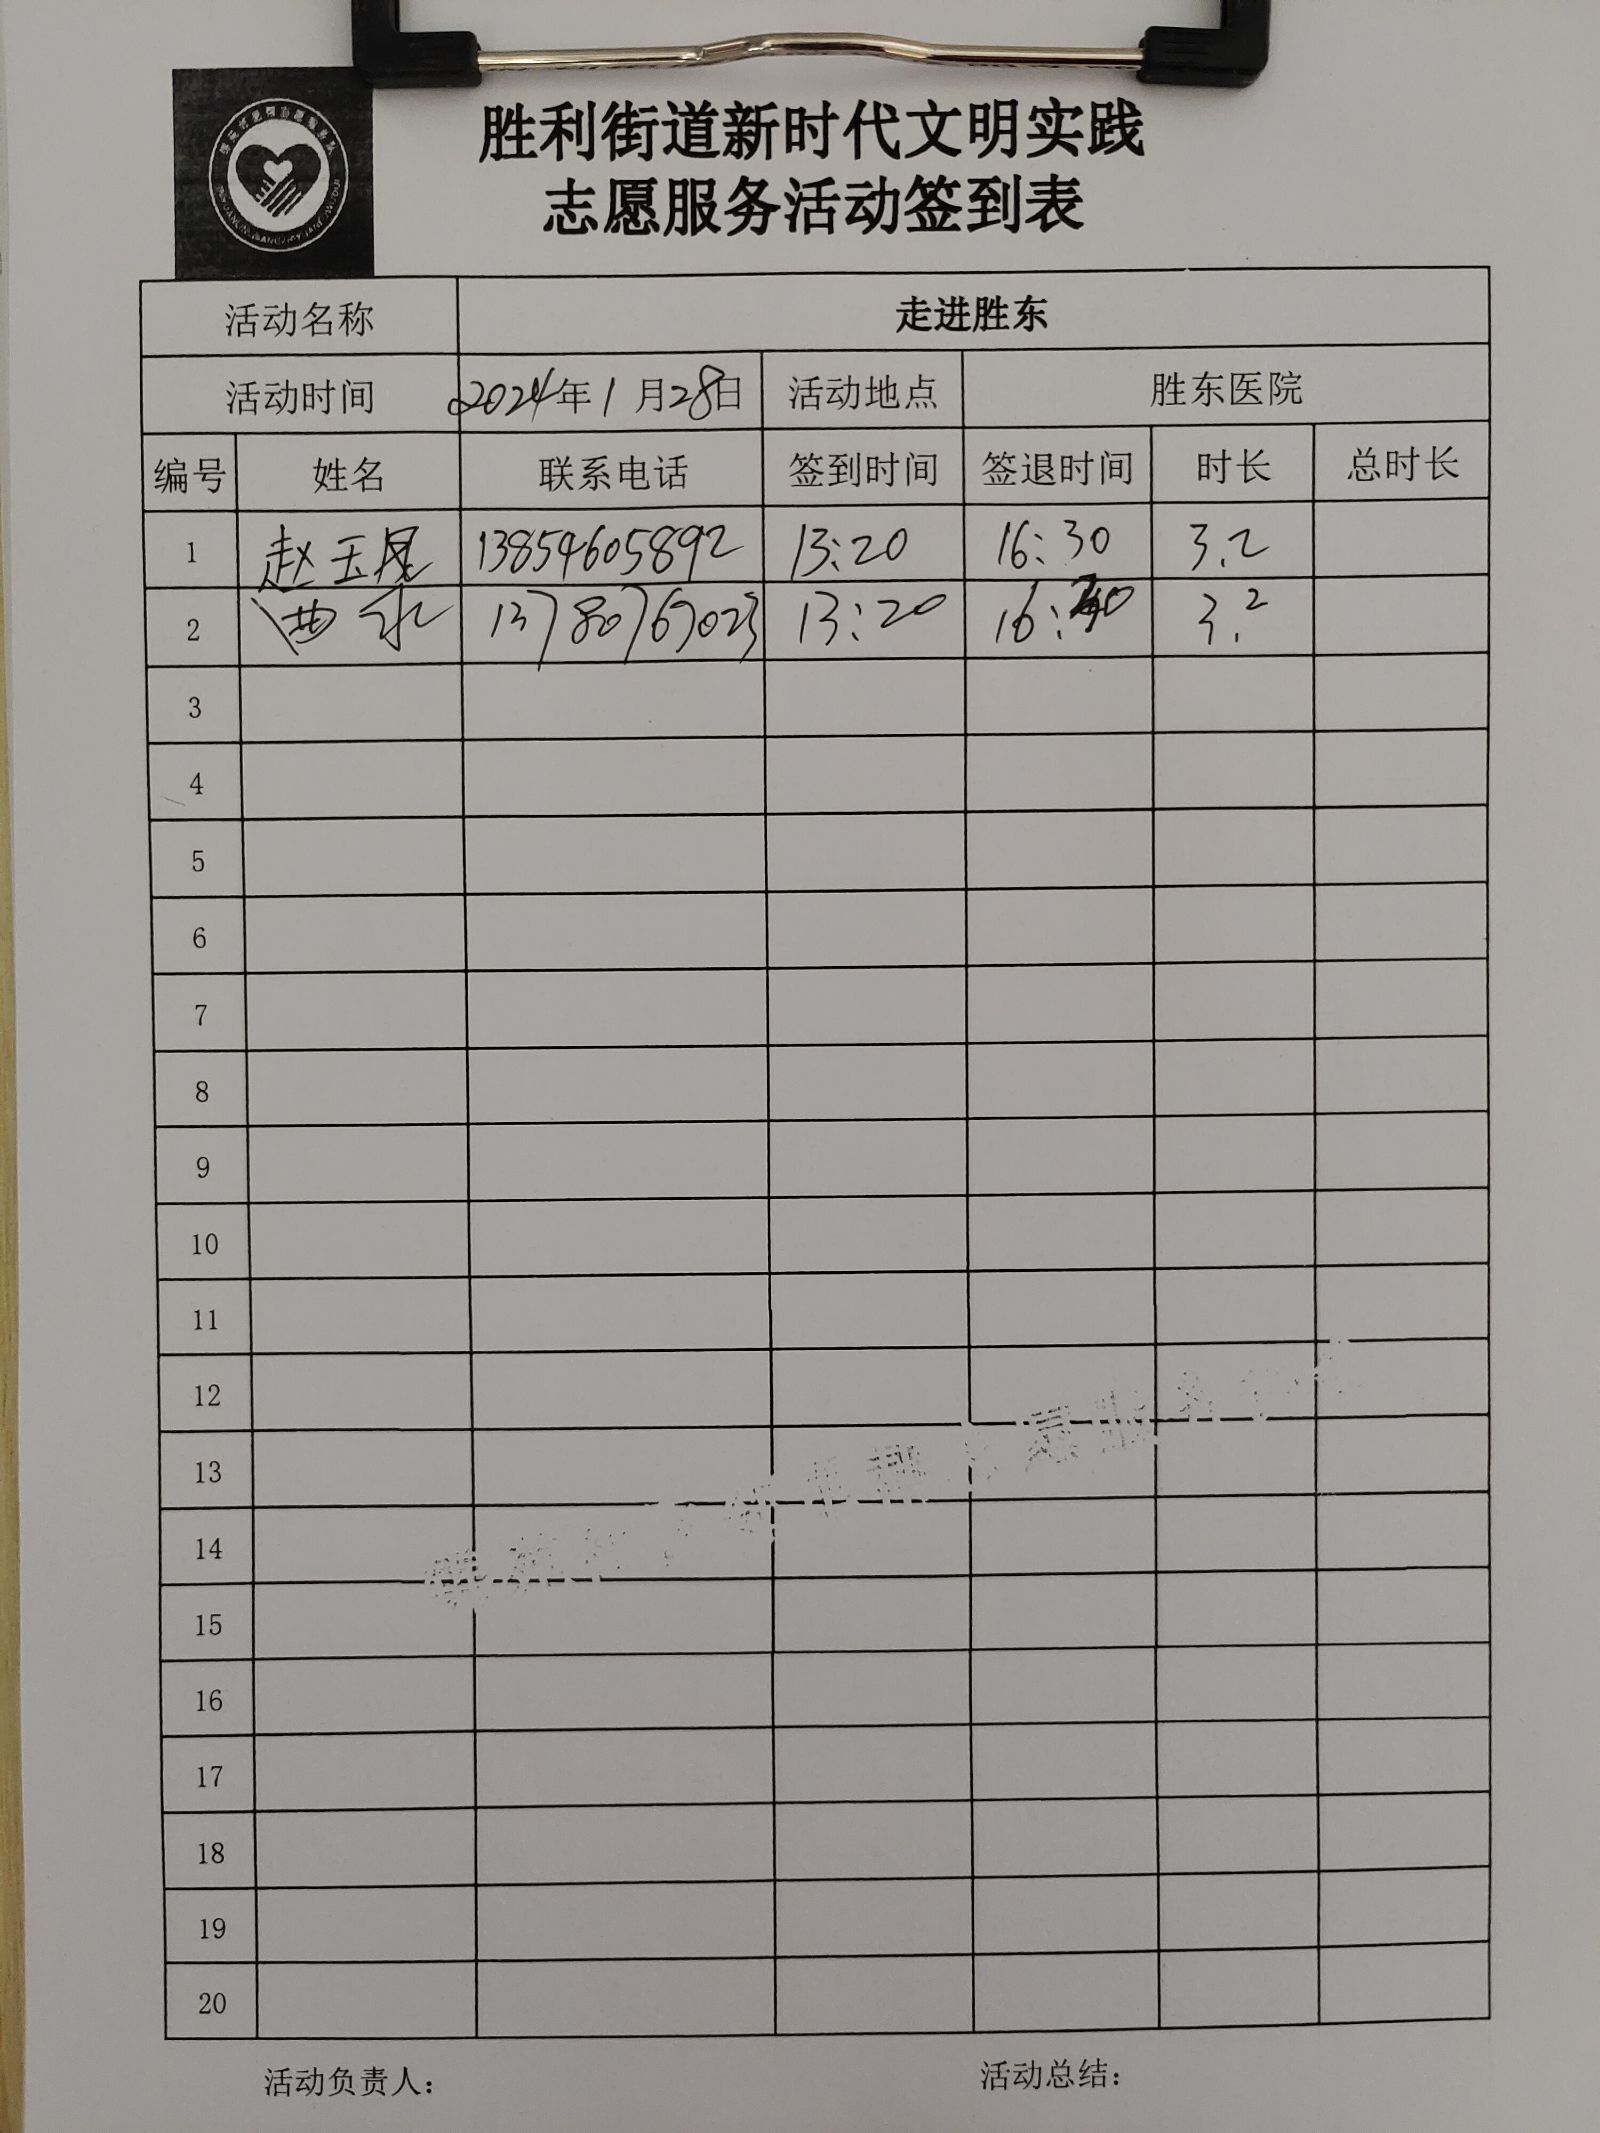 胜利街道新时代文明实践
志愿服务活动签到表
活动名称 走进胜东
活动时间 2024年1月28日 活动地点 胜东医院
编号 姓名 联系电话 签到时间 签退时间 时长 总时长
1 赵玉 13854605892 13:20 16:30 3.2
2 13:20 16: 3.2
3
4
5
6
7
8
9
10
11
12
13
14
15
16
17
18
19
20
活动负责人： 活动总结：